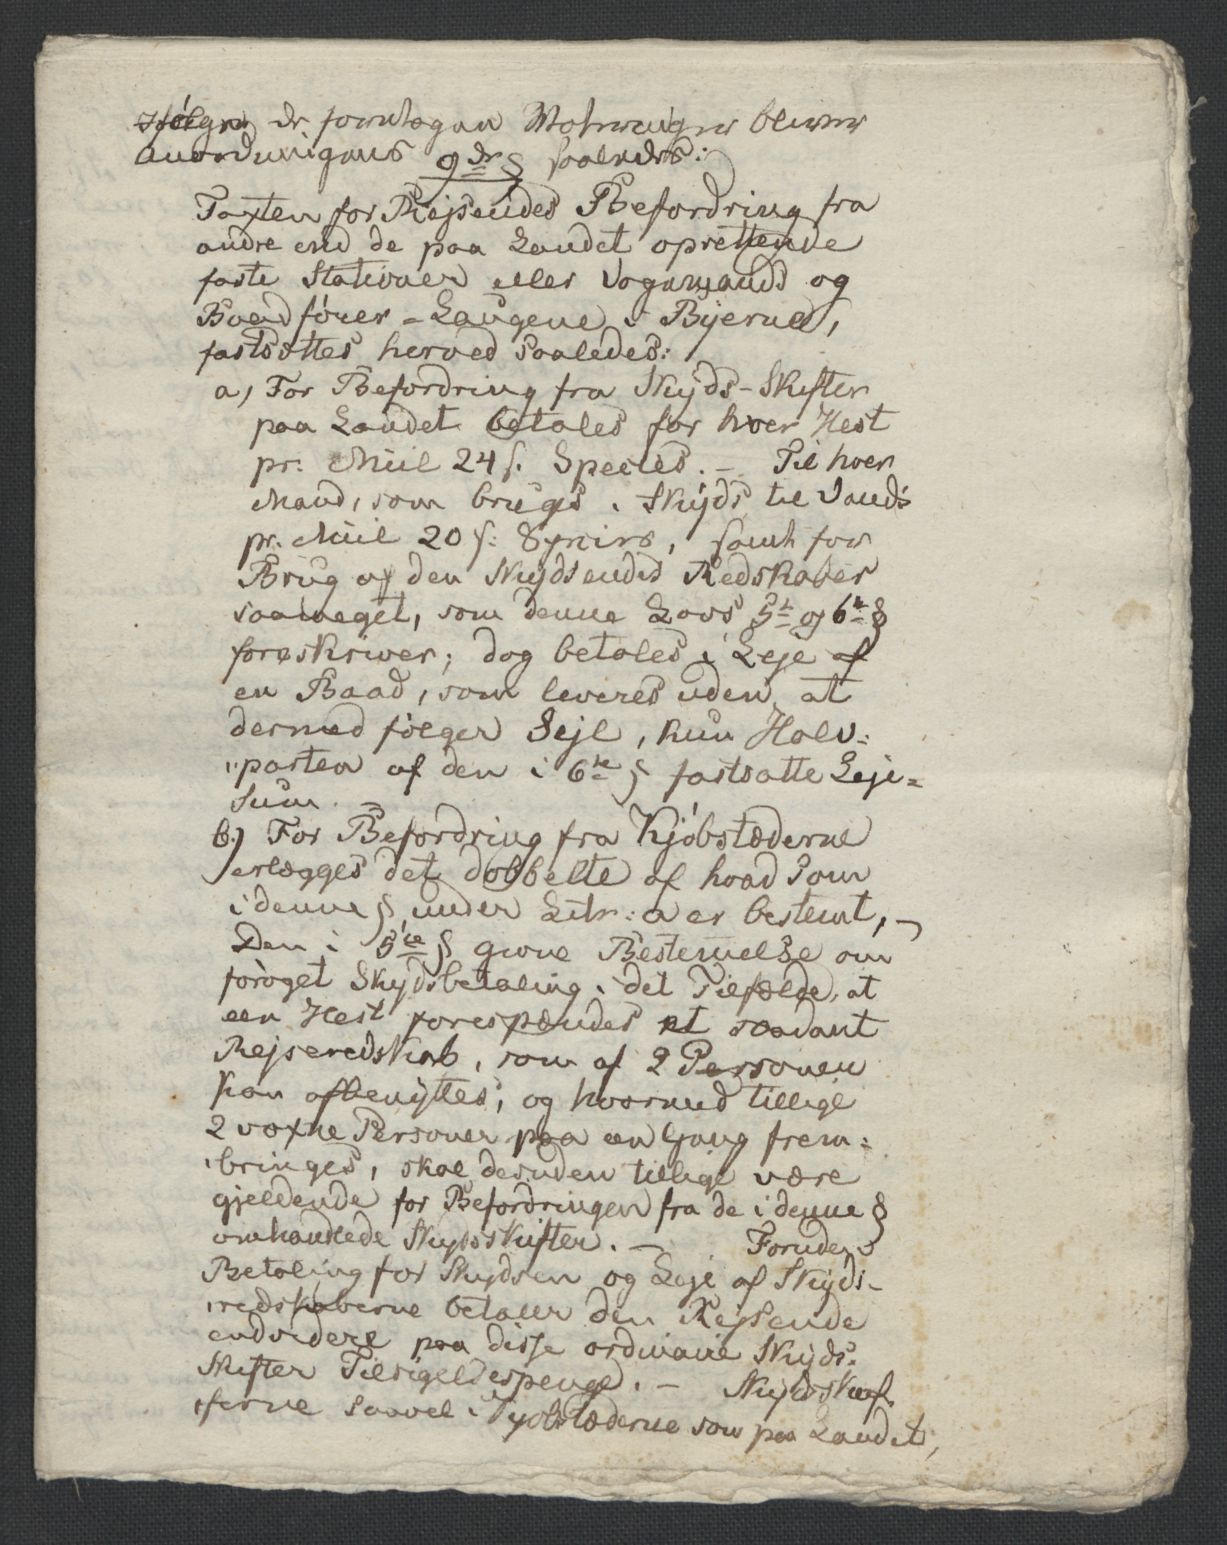 Ifølge de foranstagne Moteringer bliver
Anordningens 9de § saaledes:
Taxten for Rejsendes Befordring fra
andre end de paa Landet oprettende
faste Stationer eller Vognmands og
Baadfører-Laugene i Byerne,
fastsættes herved saaledes:
a, For Befordring fra Skyds-Skifter
paa Landet betales for hver Hest
pr. Miil 24 s. Species. – Til hver
Mand, som bruges i Skyds til Vands
pr. Miil 20 s: Species, samt for
Brug af den Skydsendes Redskaber
saameget, som denne Lovs 5te og 6te §
foreskriver; dog betales i Leje af
en Baad, som leveres uden at
dermed følger Sejl, kun Halv:
parten af den i 6te § fastsatte Leje=
sum. –
b.) For Befordring fra Kjøbstæderne
erlægges det dobbelte af hvad som
i denne § under Litr: a er bestemt, –
Den i 5te § givne Bestemelse om
forøget Skydsbetaling i det Tilfælde, at
een Hest forespændes et saadant
Rejseredskab, som af 2 Personer
kan afbenyttes, og hvormed tillige
2 voxne Personer paa een Gang frem:
bringes, skal desuden tillige være
gjeldende for Befordringen fra de i denne §
omhandlede Skydsskifter. – Foruden
Betaling for Skydsen og Leje af Skyds-
redskaberne betaler den Rejsende
endvidere paa disse ordinaire Skyds:
Skifter Tilsigelsespenge. – Skydsskaf
ferne saavel i Kjøbstæderne som paa Landet,